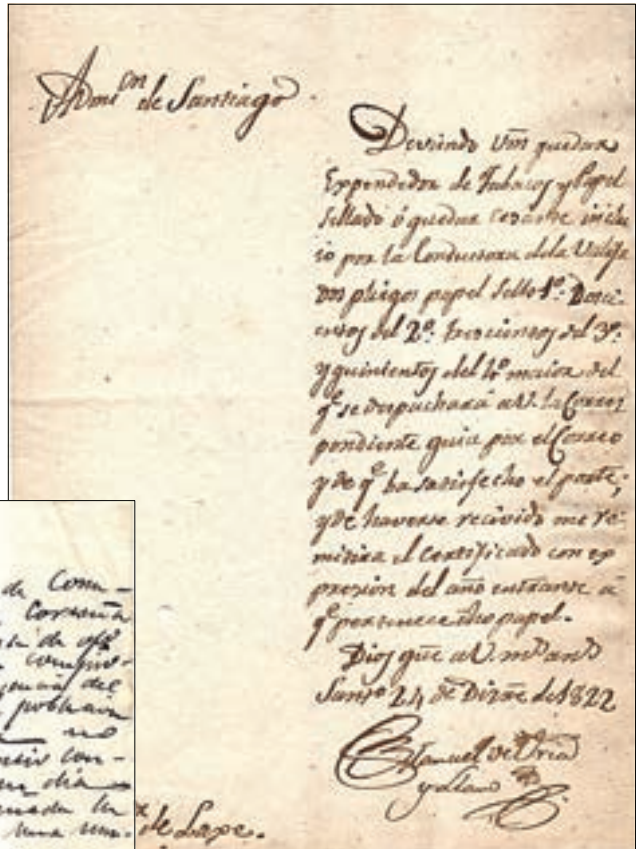 Admon de Santiago
Deviendo Vm quedar
Expendedor de Tabacos y Papel
Sellado ó quedar cesante inclu
io por la Conductora dela Valija
dos pliegos papel Sello 1º. Dosci-
entos del 2º. trescientos del 3º.
y quinientos del 4º maior del
qe se despachará a V. la Corres
pondiente guia por el Correo
y de qe ha satisfecho el porte;
y de haverse recivido me re-
mitira el Certificado con ex
presion del año entrante á
qe pertenece dho papel.
Dios gue a V. ms ans
Santo 24 de Dizre de 1822
Manuel de Vria
y Llano
de Laxe.
de Comu-
Coruña
de ofo
compro-
del
poblacion
no
con-
dia
la
una